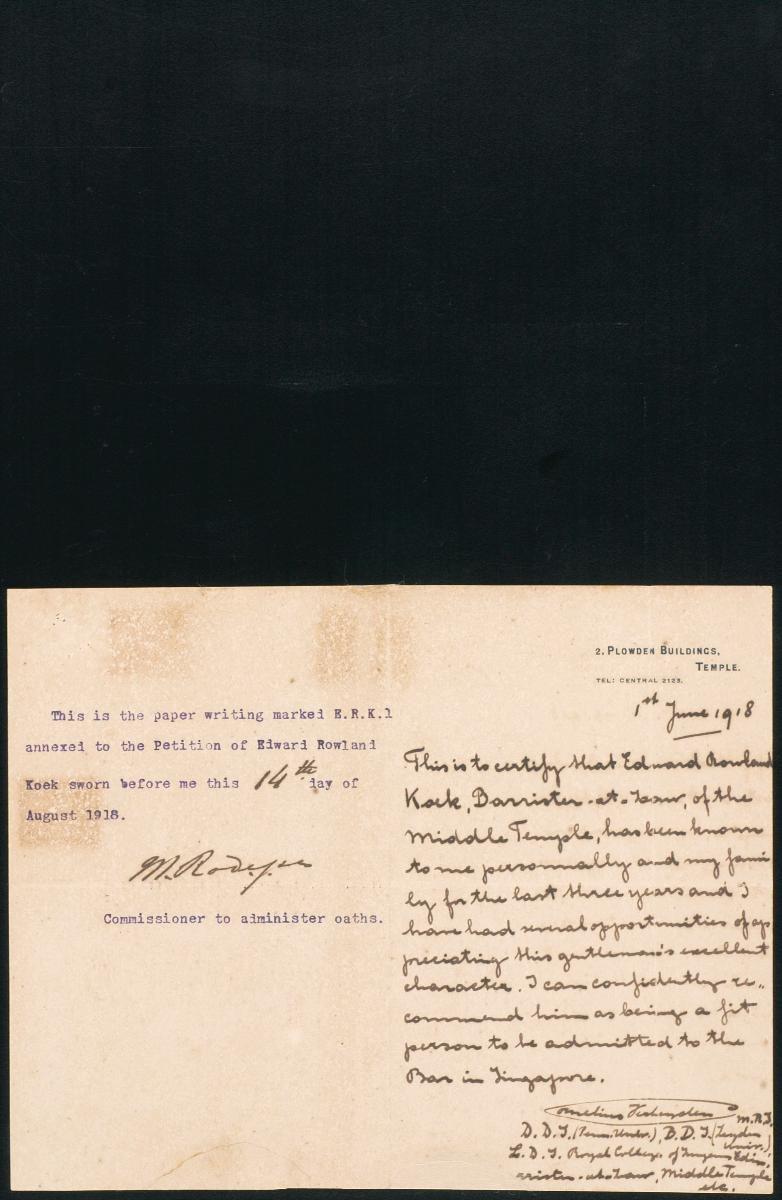 This is the paper writing marked E.R.K.1
annexed to the Petition of Edward Rowland
Koek sworn before me this 14th day of
August 1918.
Commissioner to administer oaths.
2, PLOWDEN BUILDINGS,
TEMPLE.
TEL: CENTRAL 2123.
1st June 1918
This is to certify that Edward Rowland
Koek, Barrister-at-Law, of the
Middle Temple, has been known
to me personnally and my fami
ly for the last three years and I
have had several opportunities of ap
preciating this gentleman's excellent
character. I can confidently re..
commend him as being a fit
person to be admitted to the
Bar in Singapore.
Cornelius
D.D.S. (Penn. Univ.), D.D.S. (Leyden
Univ.)
L.D.S. Royal College of Surgeons Edin,
rrister-at-Law, Middle Temple
etc.